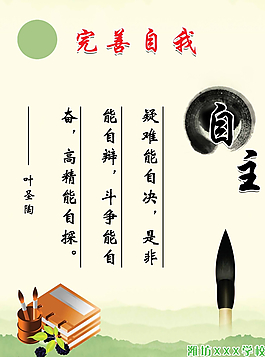 完善自我
自主
疑难能自决，是非
能自辩，斗争能自
奋，高精能自探。
——叶圣陶
潍坊xxx学校